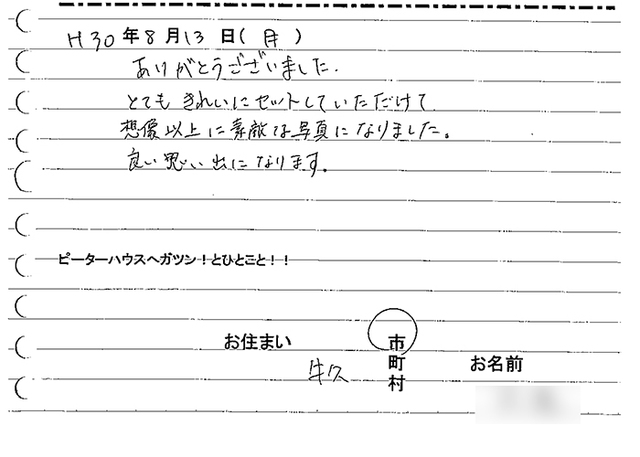 H30年8月13日(月)
ありがとうございました.
とても きれいにセットしていただけて
想像以上に素敵な写真になりました。
良い思い出になります。
ピーターハウスへガツン！とひとこと！！
お住まい
牛久
市
町
村
お名前